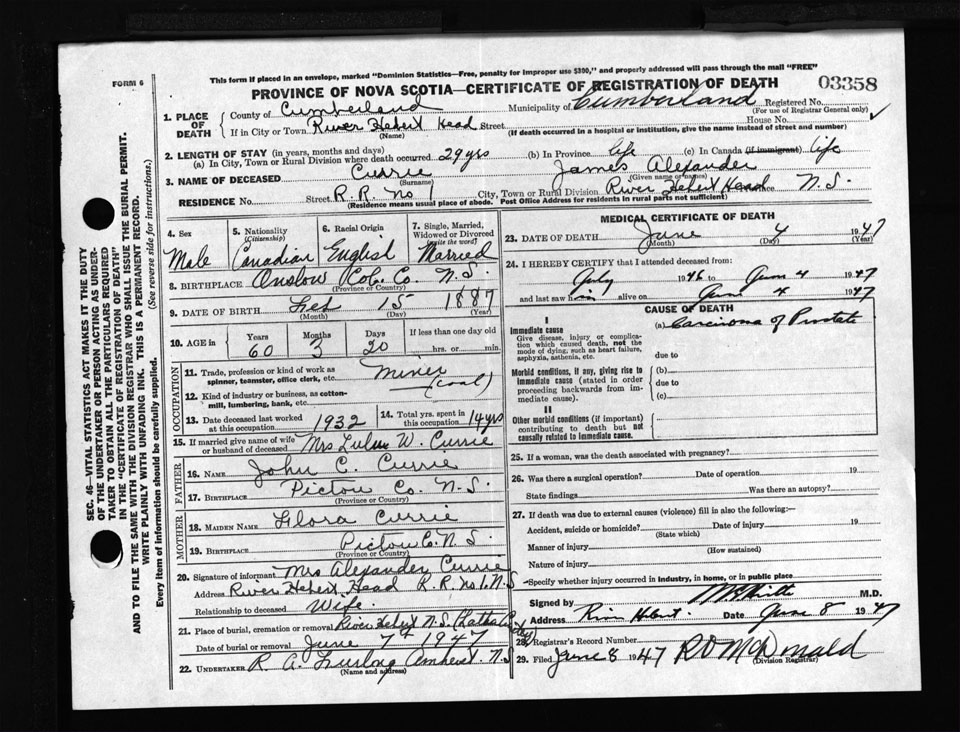 This form if placed in an envelope, marked "Dominion Statistics—Free, penalty for improper use $300," and properly addressed will pass through the mail "FREE"
FORM 6
PROVINCE OF NOVA SCOTIA—CERTIFICATE OF REGISTRATION OF DEATH
03358
1. PLACE OF DEATH
County of Cumberland Municipality of Cumberland Registered No.
(For use of Registrar General only)
If in City or Town River Hebert Head Street House No.
(Name) (If death occurred in a hospital or institution, give the name instead of street and number)
2. LENGTH OF STAY (in years, months and days)
(a) In City, Town or Rural Division where death occurred 29 yrs (b) In Province life (c) In Canada (if immigrant) life
3. NAME OF DECEASED Currie James Alexander
(Surname) (Given name or names)
RESIDENCE No. Street R.R. No 1 City, Town or Rural Division River Hebert Head N.S.
(Residence means usual place of abode. Post Office Address for residents in rural parts not sufficient)
4. Sex
Male
5. Nationality
(Citizenship)
Canadian
6. Racial Origin
English
7. Single, Married, Widowed or Divorced
(write the word)
Married
8. BIRTHPLACE Onslow Col. Co. N.S.
(Province or Country)
9. DATE OF BIRTH Feb 15 1887
(Month) (Day) (Year)
10. AGE in
Years Months Days If less than one day old
60 3 20 hrs. or min.
OCCUPATION
11. Trade, profession or kind of work as spinner, teamster, office clerk, etc. Miner
12. Kind of industry or business, as cotton-mill, lumbering, bank, etc. (coal)
13. Date deceased last worked at this occupation 1932
14. Total yrs. spent in this occupation 14 yrs
15. If married give name of wife or husband of deceased Mrs W. Currie
FATHER
16. NAME John C. Currie
17. BIRTHPLACE Pictou Co. N.S.
(Province or Country)
MOTHER
18. MAIDEN NAME Flora Currie
19. BIRTHPLACE Pictou Co. N.S.
(Province or Country)
20. Signature of informant Mrs Alexander Currie
Address River Hebert Head R.R. No 1. N.S
Relationship to deceased Wife.
21. Place of burial, cremation or removal River Hebert N.S.
Date of burial or removal June 7th 1947
22. UNDERTAKER R. A. Amherst. N.S
(Name and address)
MEDICAL CERTIFICATE OF DEATH
23. DATE OF DEATH June 4 1947
(Month) (Day) (Year)
24. I HEREBY CERTIFY that I attended deceased from:
July 1946 to June 4 1947
and last saw him alive on June 4 1947
CAUSE OF DEATH
I
Immediate cause
Give disease, injury or complication which caused death, not the mode of dying, such as heart failure, asphyxia, asthenia, etc.
(a) Carcinoma of Prostate
due to
Morbid conditions, if any, giving rise to immediate cause (stated in order proceeding backwards from immediate cause).
(b)
due to
(c)
II
Other morbid conditions (if important) contributing to death but not causally related to immediate cause.
25. If a woman, was the death associated with pregnancy?
26. Was there a surgical operation? Date of operation 19
State findings Was there an autopsy?
27. If death was due to external causes (violence) fill in also the following:—
Accident, suicide or homicide? Date of injury 19
(State which)
Manner of injury
(How sustained)
Nature of injury
Specify whether injury occurred in industry, in home, or in public place
Signed by M.D.
Address River Hebert Date June 8 1947
28. Registrar's Record Number
29. Filed June 8 1947 R D McDonald
(Division Registrar)
SEC. 46—VITAL STATISTICS ACT MAKES IT THE DUTY
OF THE UNDERTAKER OR PERSON ACTING AS UNDERTAKER TO OBTAIN ALL THE PARTICULARS REQUIRED
IN THE "CERTIFICATE OF REGISTRATION OF DEATH"
AND TO FILE THE SAME WITH THE DIVISION REGISTRAR WHO SHALL ISSUE THE BURIAL PERMIT.
WRITE PLAINLY WITH UNFADING INK. THIS IS A PERMANENT RECORD.
Every item of information should be carefully supplied. (See reverse side for instructions.)